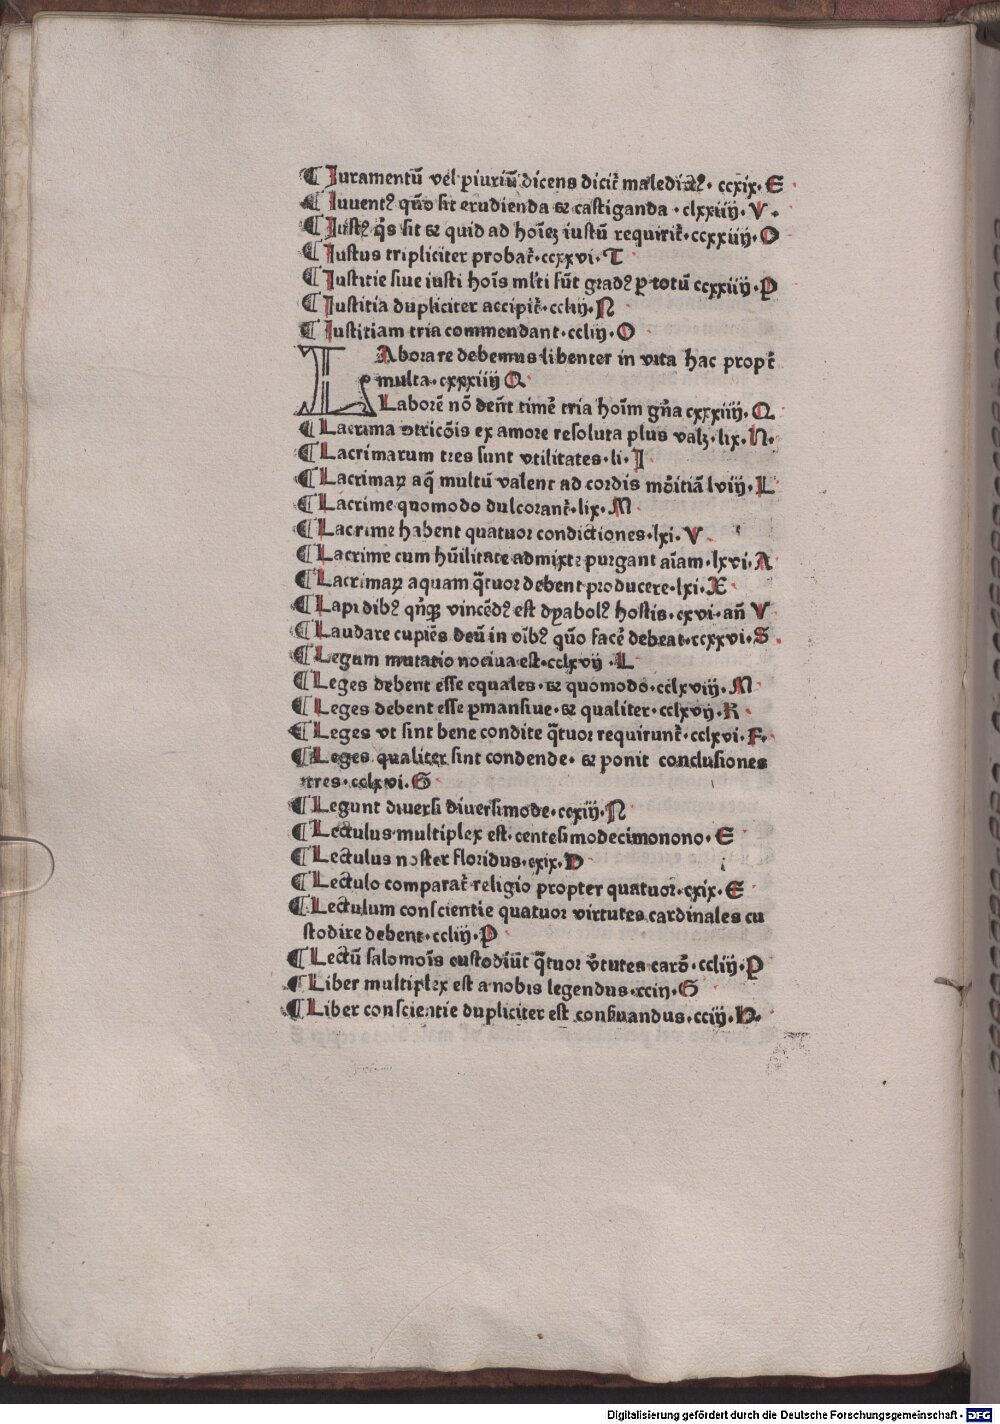 ¶ Iuramentū vel piuriū dicens dicit᷑ maledict᷒. ccxix. E
¶ Iuuent᷒ quō sit erudienda ⁊ castiganda. clxxiiij. V.
¶ Iust᷒ q̇s sit ⁊ quid ad hoīez iustū requirit᷑. ccxxiiij. O
¶ Iustus tripliciter probat᷑. ccxxvi. T
¶ Iustitie siue iusti hoīs ml̓ti sūt grad᷒ ꝑ totū ccxxiiij. P
¶ Iustitia dupliciter accipit᷑. ccliij. N
¶ Iustitiam tria commendant. ccliij. O
LAborare debemus libenter in vita hac propt᷑
multa. cxxxiiij Q
Laborē nō deñt timē tria hoīm gn̄a cxxxiiij. Q
¶ Lacrima vtricōis ex amore resoluta plus valꝫ. lix. N.
¶ Lacrimarum tres sunt vtilitates. li. I
¶ Lacrimaꝝ aq̄ multū valent ad cordis mōitiā lviij. L
¶ Lacrime quomodo dulcorant᷑. lix. M
¶ Lacrime habent quatuor condictiones. lxi. V
¶ Lacrime cum hūilitate admixte purgant aīam. lxvi. A
¶ Lacrimaꝝ aquam q̄tuor debent producere. lxi. X
¶ Lapidib᷒ qn̄qꝫ vincēd᷒ est dyabol᷒ hostis. cxvi. añ V
¶ Laudare cupiēs deū in oīb᷒ quō facē debeat. ccxxvi. S
¶ Legum mutatio nociua est. cclxvij. L
¶ Leges debent esse equales. ⁊ quomodo. cclxviij. M
¶ Leges debent esse ꝑmansiue. ⁊ qualiter. cclxvij. K
¶ Leges vt sint bene condite q̄tuor requirunt᷑. cclxvi. F.
¶ Leges qualiter sint condende. ⁊ ponit conclusiones
tres. cclxvi. G
¶ Legunt diuersi diuersimode. ccxiij. N
¶ Lectulus multiplex est. centesimodecimonono. E
¶ Lectulus noster floridus. cxix. D
¶ Lectulo comparat᷑ religio propter quatuor. cxix. E
¶ Lectulum conscientie quatuor virtutes cardinales cu
stodire debent. ccliij. P
¶ Lectū salomoīs custodiūt q̄tuor v̓tutes cardī. ccliij. P
¶ Liber multiplex est a nobis legendus. xciij. G
¶ Liber conscientie dupliciter est conẜuandus. cciij. D.
Digitalisierung gefördert durch die Deutsche Forschungsgemeinschaft - DFG